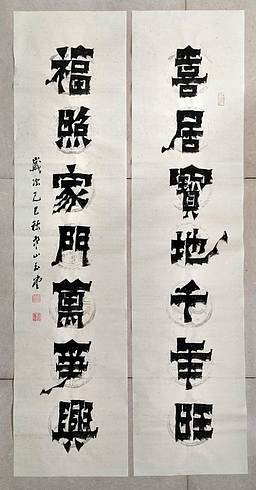 喜居寶地千年旺
福照家門萬事興
歲次乙巳秋